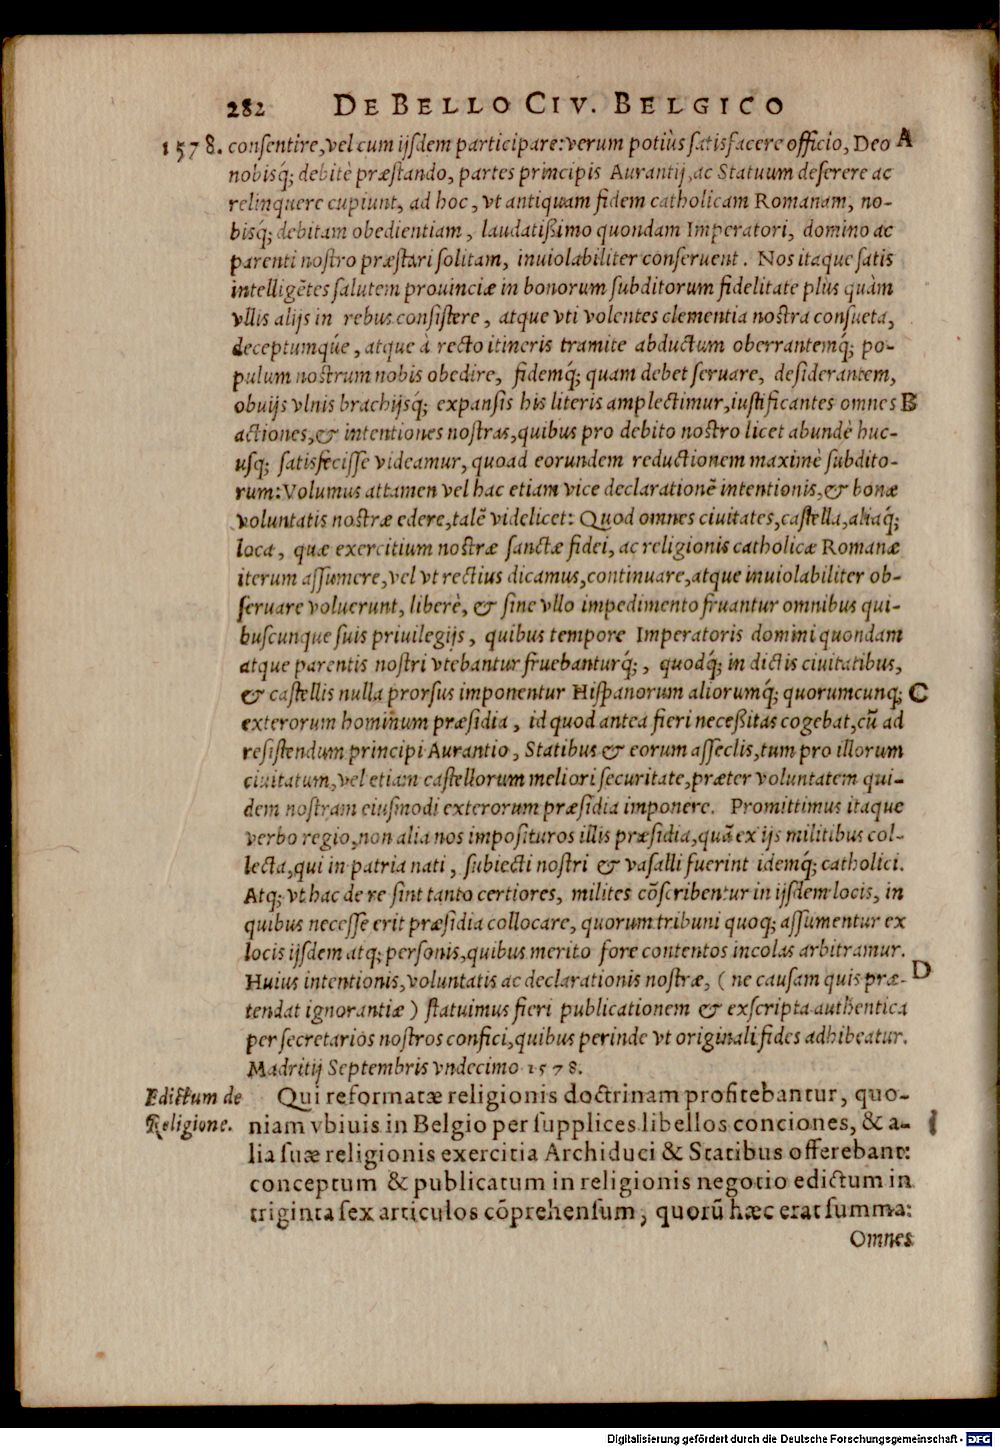 282 DE BELLO CIV. BELGICO
1578. conſentire, vel cum ijſdem participare: verum potiùs ſatisfacere officio, Deo A
nobisq́; debitè præſtando, partes principis Aurantij, ac Statuum deſerere ac
relinquere cupiunt, ad hoc, vt antiquam fidem catholicam Romanam, no-
bisq́; debitam obedientiam, laudatißimo quondam Imperatori, domino ac
parenti noſtro præſtari ſolitam, inuiolabiliter conſeruent. Nos itaque ſatis
intelligētes ſalutem prouinciæ in bonorum ſubditorum fidelitate plùs quàm
vllis alijs in rebus conſiſtere, atque vti volentes clementia noſtra conſueta,
deceptumqúe, atque à recto itineris tramite abductum oberrantemq́; po-
pulum noſtrum nobis obedire, fidemq́; quam debet ſeruare, deſiderantem,
obuijs vlnis brachijsq́; expanſis his literis amplectimur, iuſtificantes omnes B
actiones, & intentiones noſtras, quibus pro debito noſtro licet abundè huc-
uſq; ſatisfeciſſe videamur, quoad eorundem reductionem maximè ſubdito-
rum: Volumus attamen vel hac etiam vice declarationē intentionis, & bonæ
voluntatis noſtræ edere, talē videlicet: Quod omnes ciuitates, caſtella, aliaq́;
loca, quæ exercitium noſtræ ſanctæ fidei, ac religionis catholicæ Romanæ
iterum aſſumere, vel vt rectius dicamus, continuare, atque inuiolabiliter ob-
ſeruare voluerunt, liberè, & ſine vllo impedimento fruantur omnibus qui-
buſcunque ſuis priuilegijs, quibus tempore Imperatoris domini quondam
atque parentis noſtri vtebantur fruebanturq́;, quodq́; in dictis ciuitatibus,
& caſtellis nulla prorſus imponentur Hiſpanorum aliorumq́; quorumcunq; C
exterorum hominum præſidia, id quod antea fieri neceßitas cogebat, cū ad
reſiſtendum principi Aurantio, Statibus & eorum aſſeclis, tum pro illorum
ciuitatum, vel etiam caſtellorum meliori ſecuritate, præter voluntatem qui-
dem noſtram eiuſmodi exterorum præſidia imponere. Promittimus itaque
verbo regio, non alia nos impoſituros illis præſidia, quā ex ijs militibus col-
lecta, qui in patria nati, ſubiecti noſtri & vaſalli fuerint idemq́; catholici.
Atq; vt hac de re ſint tanto certiores, milites cōſcribentur in ijſdem locis, in
quibus neceſſe erit præſidia collocare, quorum tribuni quoq; aſſumentur ex
locis ijſdem atq; perſonis, quibus merito fore contentos incolas arbitramur.
Huius intentionis, voluntatis ac declarationis noſtræ, (ne cauſam quis præ- D
tendat ignorantiæ) ſtatuimus fieri publicationem & exſcripta authentica
per ſecretarios noſtros confici, quibus perinde vt originali fides adhibeatur.
Madritij Septembris vndecimo 1578.
Edictum de
Religione.
Qui reformatæ religionis doctrinam profitebantur, quo-
niam vbiuis in Belgio per ſupplices libellos conciones, & a-
lia ſuæ religionis exercitia Archiduci & Statibus offerebant:
conceptum & publicatum in religionis negotio edictum in
triginta ſex articulos cōprehenſum, quorū hæc erat ſumma:
Omnes
Digitalisierung gefördert durch die Deutsche Forschungsgemeinschaft - DFG